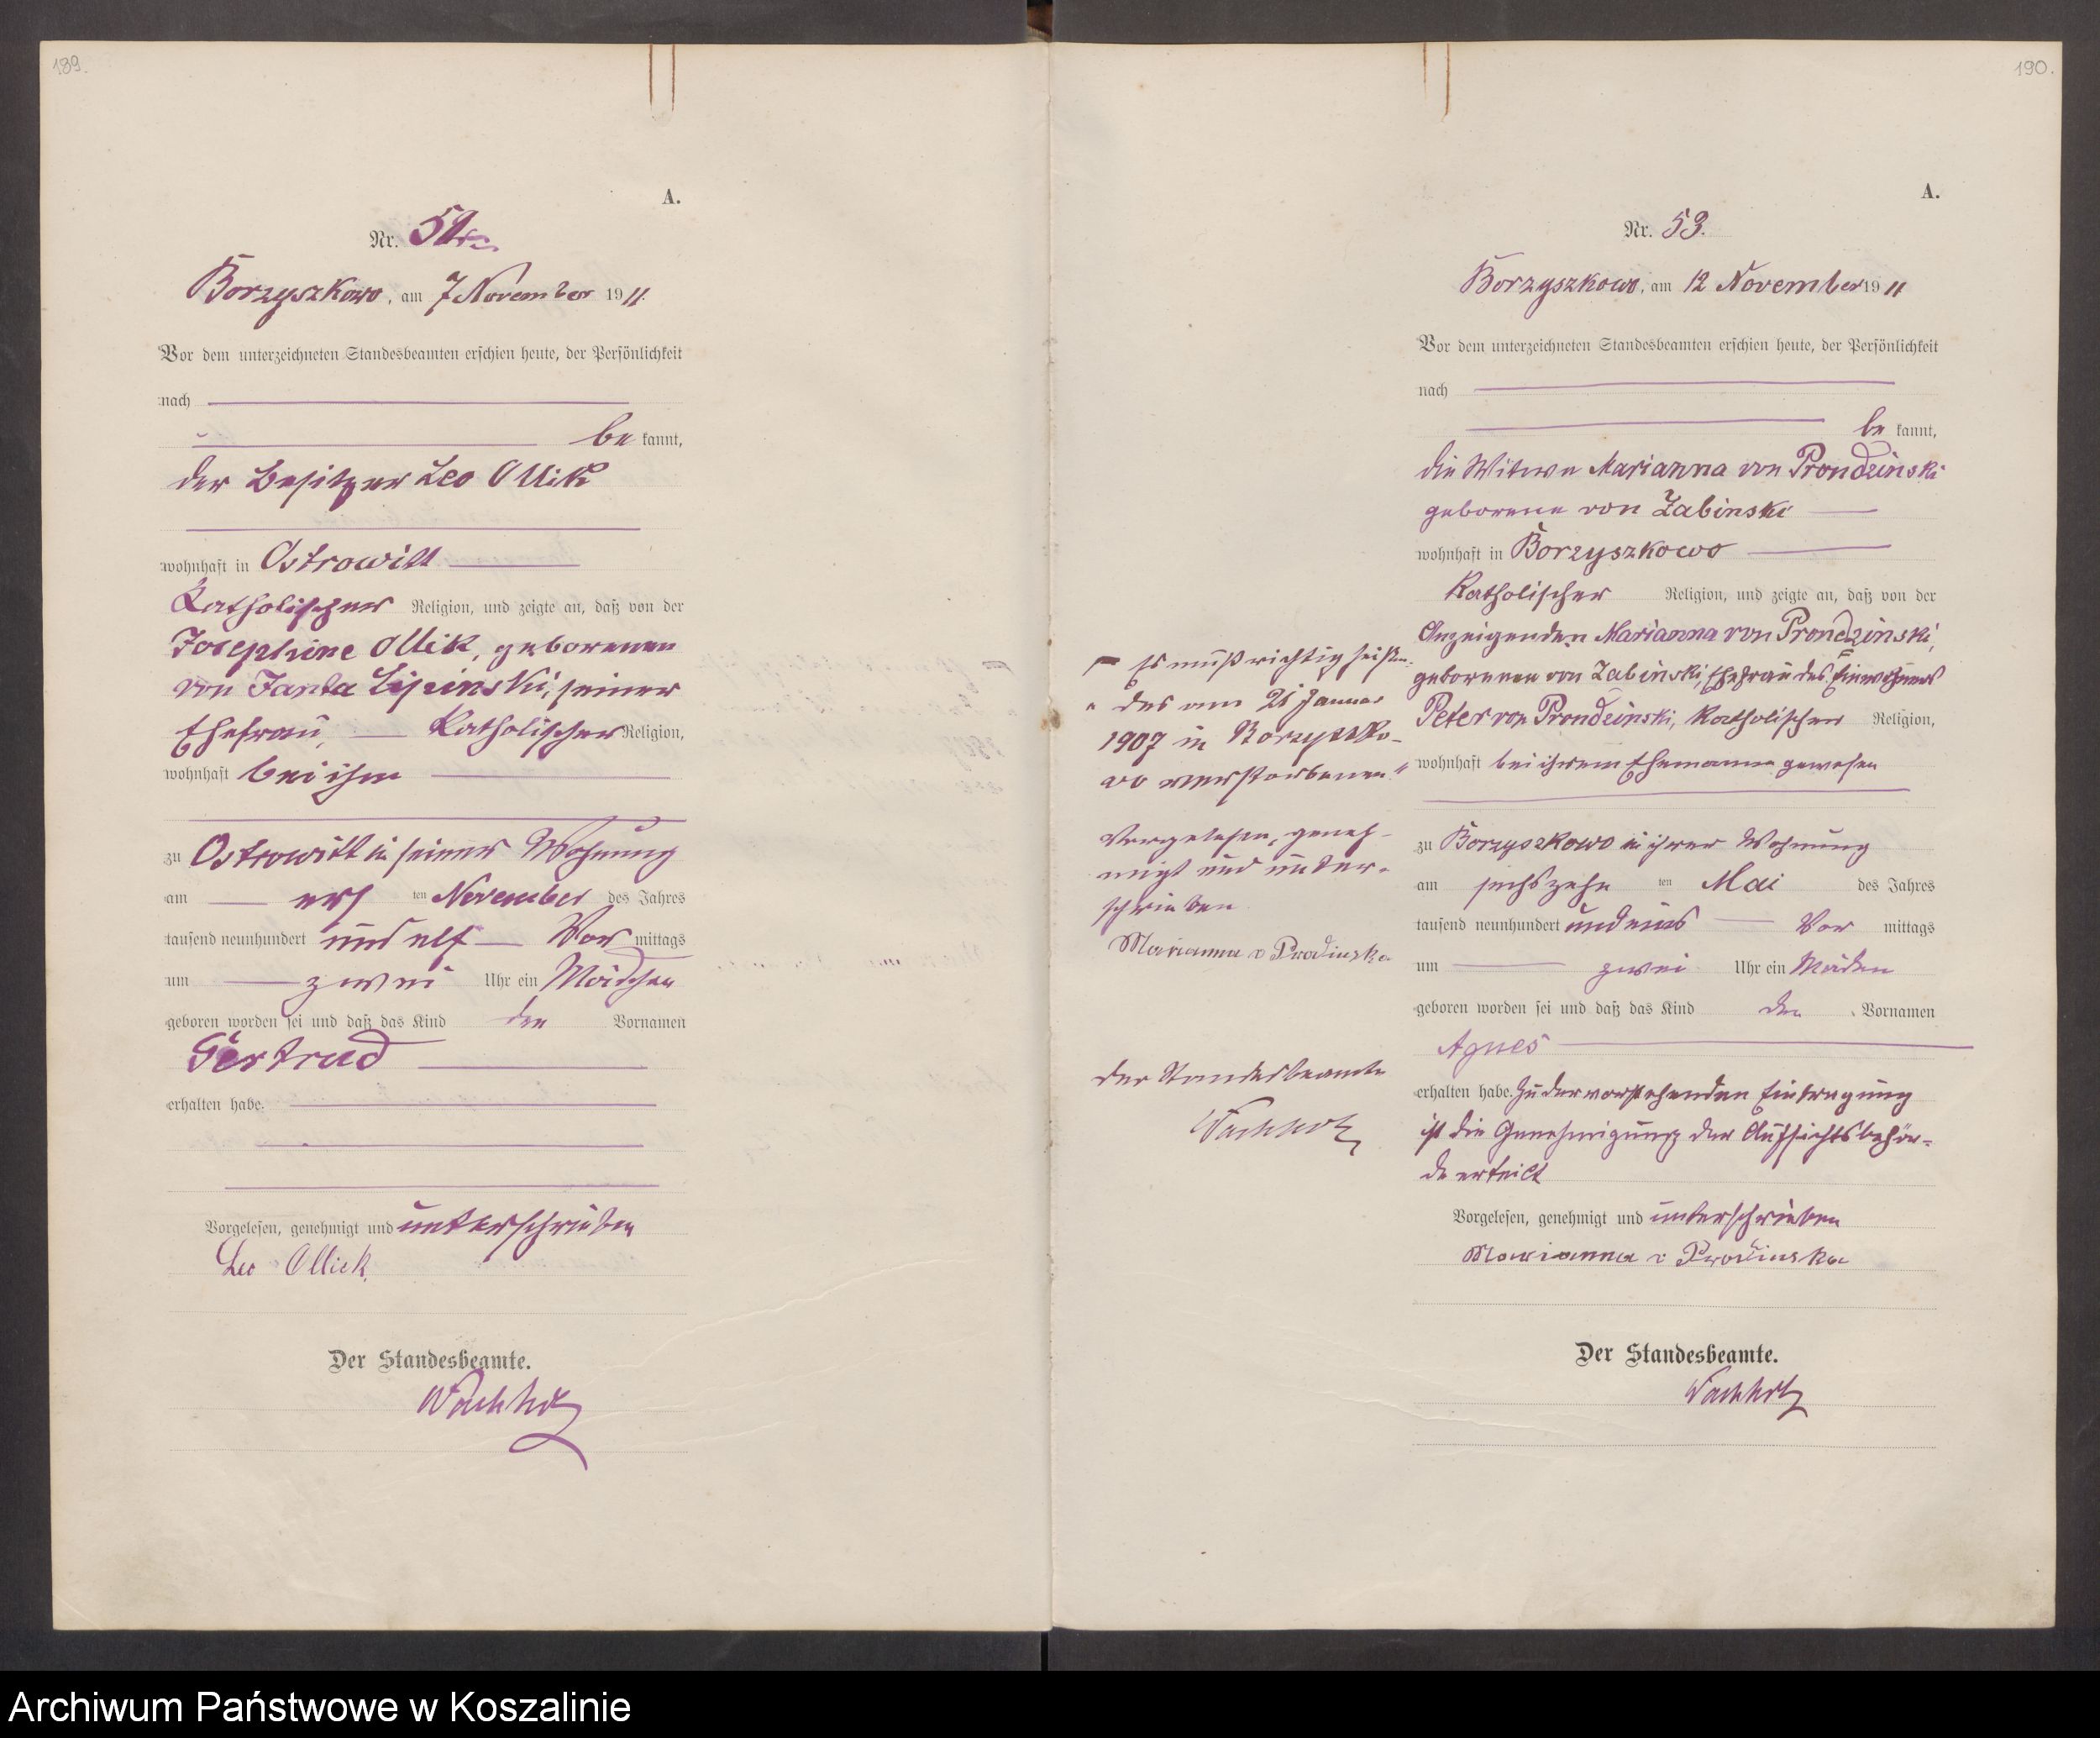 189.
A.
Nr.
Borzyszkowo, am 7 November 1911.
Vor dem unterzeichneten Standesbeamten erschien heute, der Persönlichkeit
nach
be kannt,
der Besitzer Leo Ollik
wohnhaft in Ostrowitt
Katholischer Religion, und zeigte an, daß von der
Josephine Ollik, geborenen
von Janta Lipinski, seiner
Ehefrau, Katholischer Religion,
wohnhaft bei ihm
zu Ostrowitt in seiner Wohnung
am ten November des Jahres
tausend neunhundert und elf Vor mittags
um zwei Uhr ein Mädchen
geboren worden sei und daß das Kind den Vornamen
Gertrud
erhalten habe.
Vorgelesen, genehmigt und unterschrieben
Leo Ollick
Der Standesbeamte.
Wachholz
190.
A.
Nr. 53.
Borzyszkowo, am 12 November 1911
Vor dem unterzeichneten Standesbeamten erschien heute, der Persönlichkeit
nach
be kannt,
die Witwe Marianna von Prondzinski
geborene von Zabinski
wohnhaft in Borzyszkowo
Katholischer Religion, und zeigte an, daß von der
Anzeigenden Marianna von Prondzinski,
geborenen von Zabinski, Ehefrau des Einwohners
Peter von Prondzinski, Katholischer Religion,
wohnhaft bei ihrem Ehemanne gewesen
zu Borzyszkowo in ihrer Wohnung
am sechszehn ten Mai des Jahres
tausend neunhundert und eins Vor mittags
um zwei Uhr ein Mäden
geboren worden sei und daß das Kind den Vornamen
Agnes
erhalten habe. Zu der vorstehenden Eintragung
ist die Genehmigung der Aufsichtsbehör-
de erteilt
Vorgelesen, genehmigt und unterschrieben
Marianna v Prodzinska
Der Standesbeamte.
Wachholz
Es muß richtig heißen:
"des am 21 Januar
1907 in Borzyszko-
wo verstorbenen"
Vorgelesen, geneh-
migt und unter-
schrieben
Marianna v Prodzinska
Der Standesbeamte
Wachholz
Archiwum Państwowe w Koszalinie